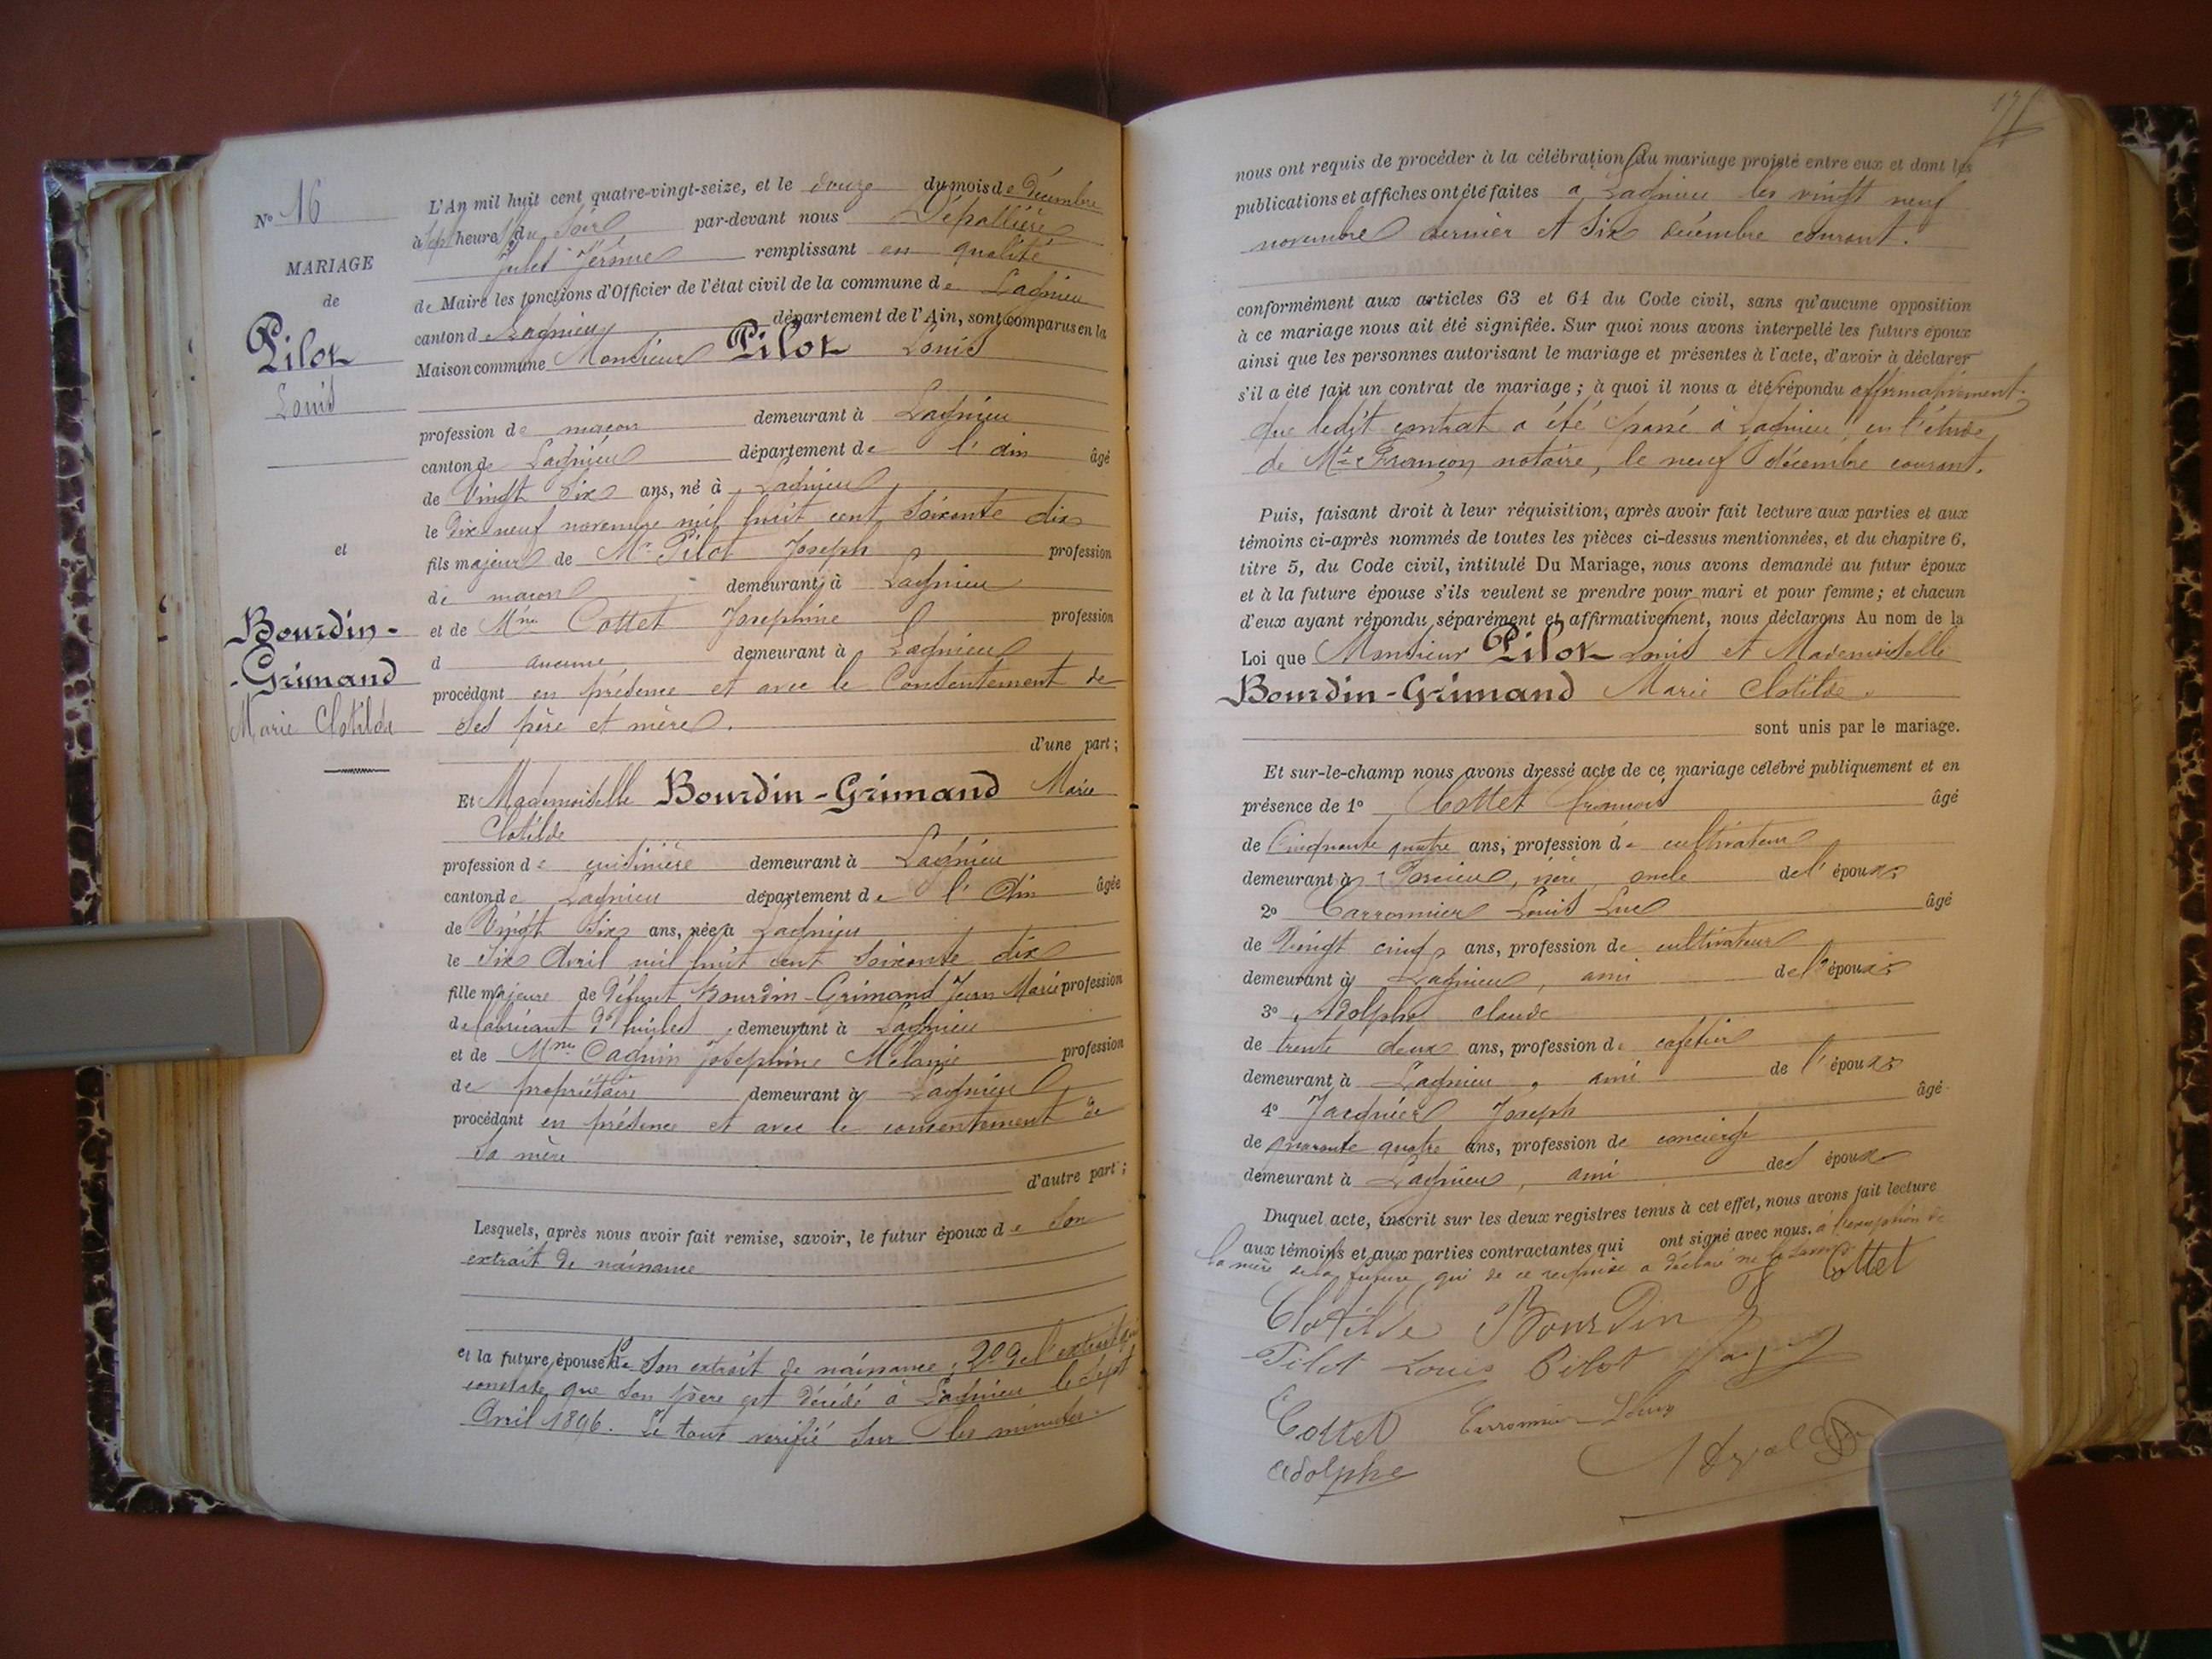 N° 16
MARIAGE
de
Pilot
Louis
et
Bourdin-
-Grimand
Marie Clotilde
L'An mil huit cent quatre-vingt-seize, et le douze du mois de Décembre
à sept heures du soir par-devant nous Dépallière
Jules remplissant en qualité
de Maire les fonctions d'Officier de l'état civil de la commune de Lagnieu
canton de Lagnieu département de l'Ain, sont comparus en la
Maison commune Monsieur Pilot Louis
profession de maçon demeurant à Lagnieu
canton de Lagnieu département de l'ain âgé
de Vingt Six ans, né à Lagnieu
le Dix neuf novembre mil huit cent soixante dix
fils majeur de Mr Pilot Joseph profession
de maçon demeurant à Lagnieu
et de Mme Cottet Josephine profession
d aucune demeurant à Lagnieu
procédant en présence et avec le Consentement de
ses père et mère.
d'une part;
Et Mademoiselle Bourdin-Grimand Marie
Clotilde
profession de cuisinière demeurant à Lagnieu
canton de Lagnieu département de l'Ain âgée
de Vingt Six ans, née à Lagnieu
le Six Avril mil huit cent soixante dix
fille majeure de Défunt Bourdin-Grimand Jean Marie profession
de fabricant d'huiles demeurant à Lagnieu
et de Mme Cagnin Josephine Mélanie profession
de propriétaire demeurant à Lagnieu
procédant en présence et avec le consentement de
sa mère
d'autre part;
Lesquels, après nous avoir fait remise, savoir, le futur époux de son
extrait de naissance
et la future épouse 1° de son extrait de naissance; 2° de l'extrait qui
constate que son père est décédé à Lagnieu le sept
Avril 1896. Le tout vérifié sur les minutes.
17
nous ont requis de procéder à la célébration du mariage projeté entre eux et dont les
publications et affiches ont été faites a Lagnieu les vingt neuf
novembre dernier et Six décembre courant.
conformément aux articles 63 et 64 du Code civil, sans qu'aucune opposition
à ce mariage nous ait été signifiée. Sur quoi nous avons interpellé les futurs époux
ainsi que les personnes autorisant le mariage et présentes à l'acte, d'avoir à déclarer
s'il a été fait un contrat de mariage; à quoi il nous a été répondu affirmativement.
que ledit contrat a été passé à Lagnieu en l'étude
de Me Françon notaire, le neuf décembre courant.
Puis, faisant droit à leur réquisition, après avoir fait lecture aux parties et aux
témoins ci-après nommés de toutes les pièces ci-dessus mentionnées, et du chapitre 6,
titre 5, du Code civil, intitulé Du Mariage, nous avons demandé au futur époux
et à la future épouse s'ils veulent se prendre pour mari et pour femme; et chacun
d'eux ayant répondu séparément et affirmativement, nous déclarons Au nom de la
Loi que Monsieur Pilot Louis et Mademoiselle
Bourdin-Grimand Marie Clotilde.
sont unis par le mariage.
Et sur-le-champ nous avons dressé acte de ce mariage célébré publiquement et en
présence de 1° Cottet françois âgé
de Cinquante quatre ans, profession de cultivateur
demeurant à oncle de l'époux
2° Carronnier Louis Luc âgé
de Vingt cinq ans, profession de cultivateur
demeurant à Lagnieu, ami de l'époux
3° Adolphe claude
de trente deux ans, profession de cafetier
demeurant à Lagnieu, ami de l'époux
4° Jacquier Joseph âgé
de quarante quatre ans, profession de concierge
demeurant à Lagnieu, ami des époux
Duquel acte, inscrit sur les deux registres tenus à cet effet, nous avons fait lecture
aux témoins et aux parties contractantes qui ont signé avec nous. à l'exception de
la mère de la future qui de ce requise a déclaré ne le savoir
Cottet
Clotilde Bourdin
Pilot Louis Pilot
Cottet Carronnier Louis
Adolphe